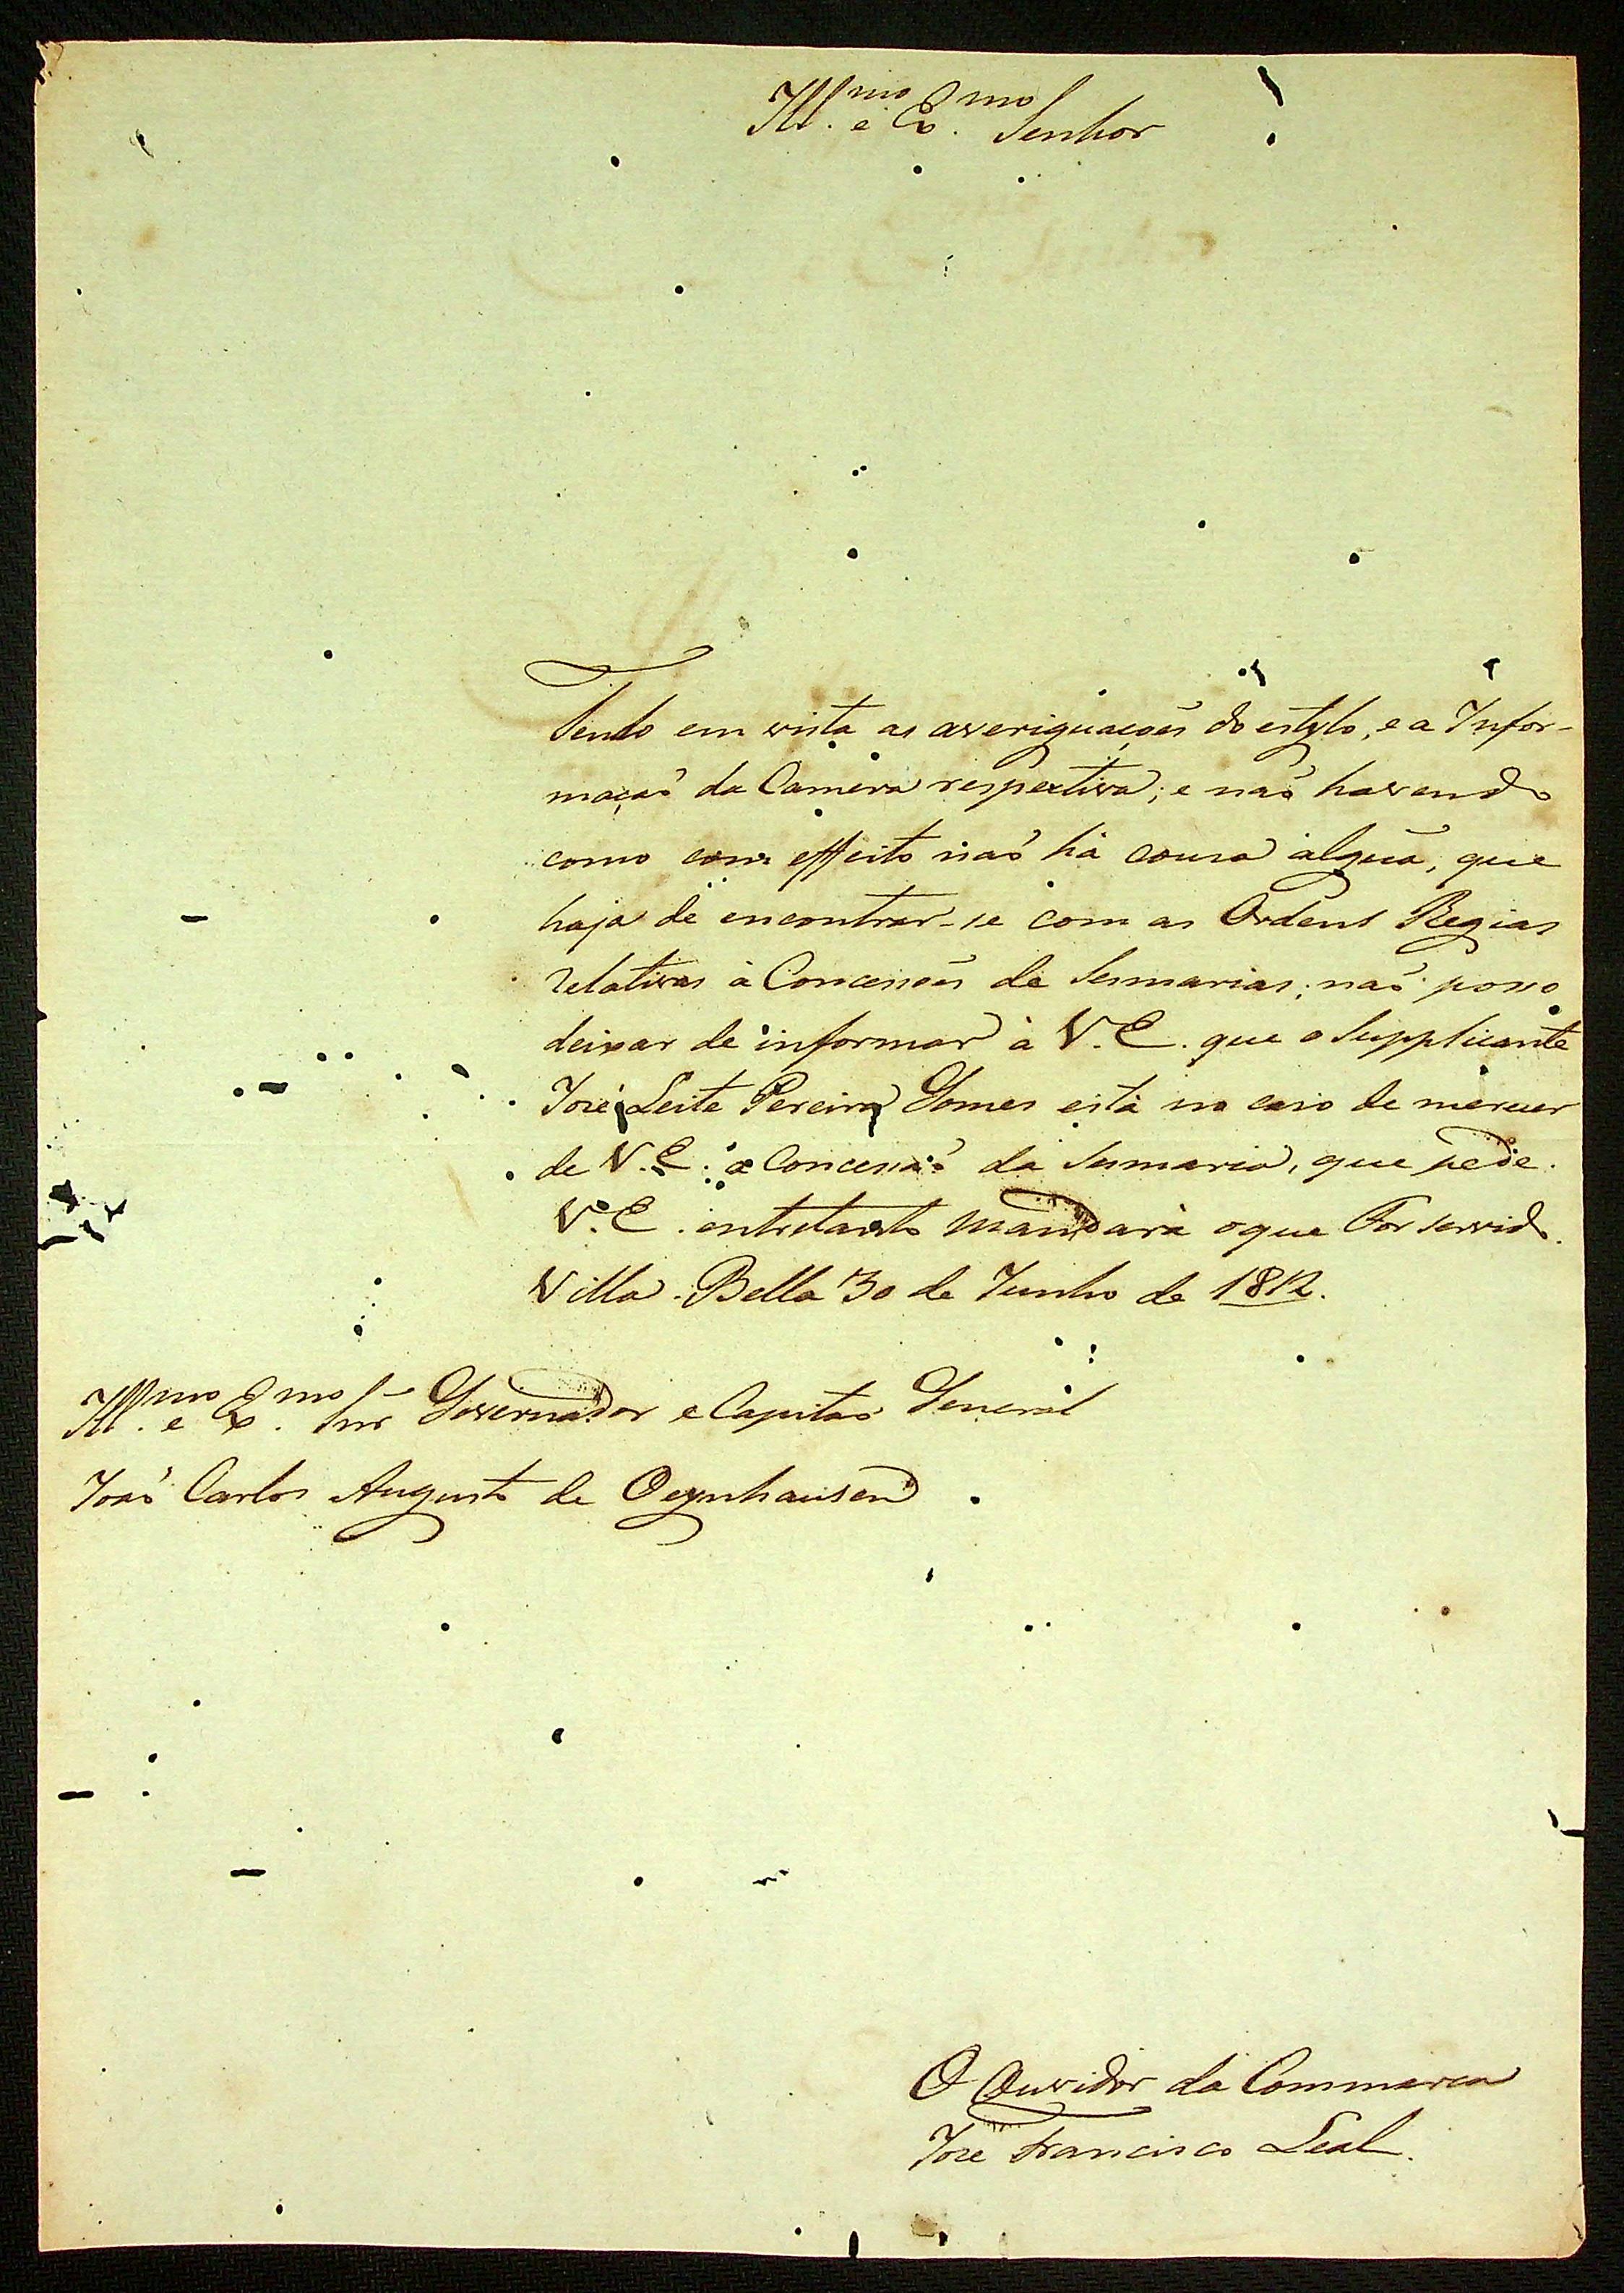 Ill.mo e Ex.mo Senhor
Tendo em vista as averiguaçoẽs do estylo, e a Infor-
maçaõ da Camera respectiva; e naõ havendo
como com effeito naõ há cousa algũa, que
haja de encontrar-se com as Ordens Regias
relativas á Concessoẽs de Sesmarias; naõ posso
deixar de informar á V. E. que o Supplicante
José Leite Pereira Gomes está no caso de merecer
de V. E. a Concessaõ da Sesmaria, que pede.
V. E. entretanto mandará o que For servido.
Villa Bella 30 de Junho de 1812.
Ill.mo e Ex.mo Snr Governador e Capitaõ General
Joaõ Carlos Augusto de Oeynhausen
O Ouvidor da Commarca
Joze Francisco Leal.